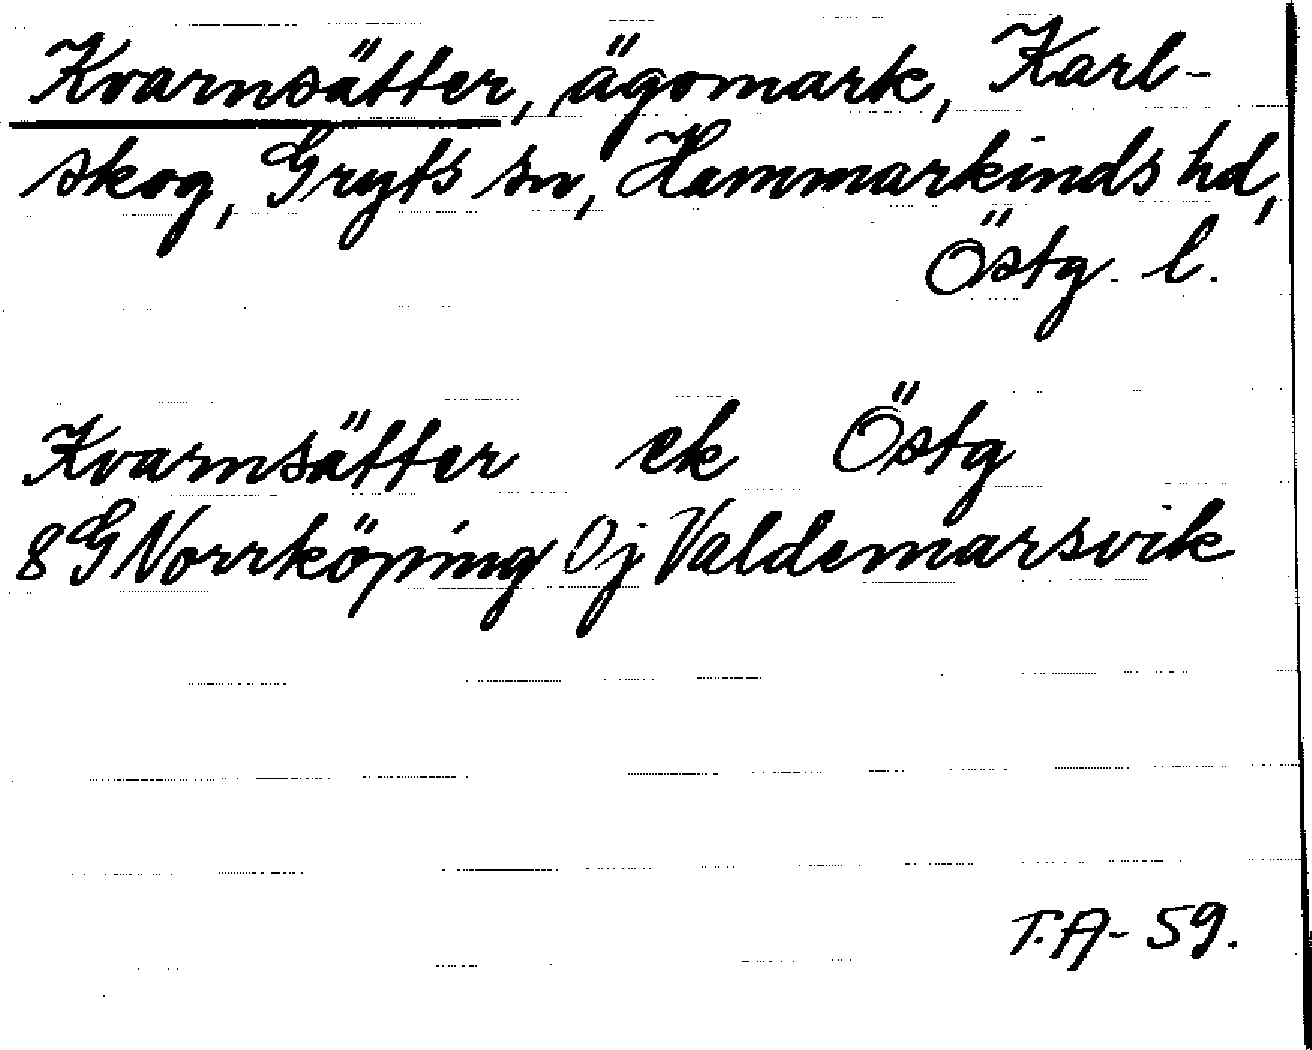 Kvarnsätter, ägomark, Karl-
skog, Gryts sn, Hammarkinds hd,
Östg. l.
Kvarnsätter ek Östg
8G Norrköping 0j Valdemarsvik
T.A- 59.